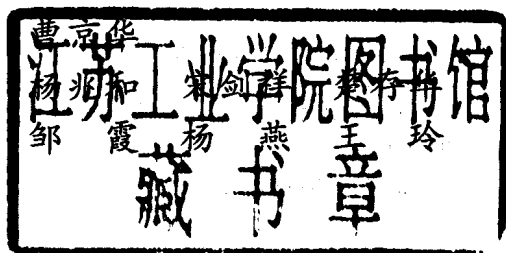 曹京华
江苏工业学院图书馆
杨 和 宋剑祥 存
邹霞 杨燕 王玲
藏书章